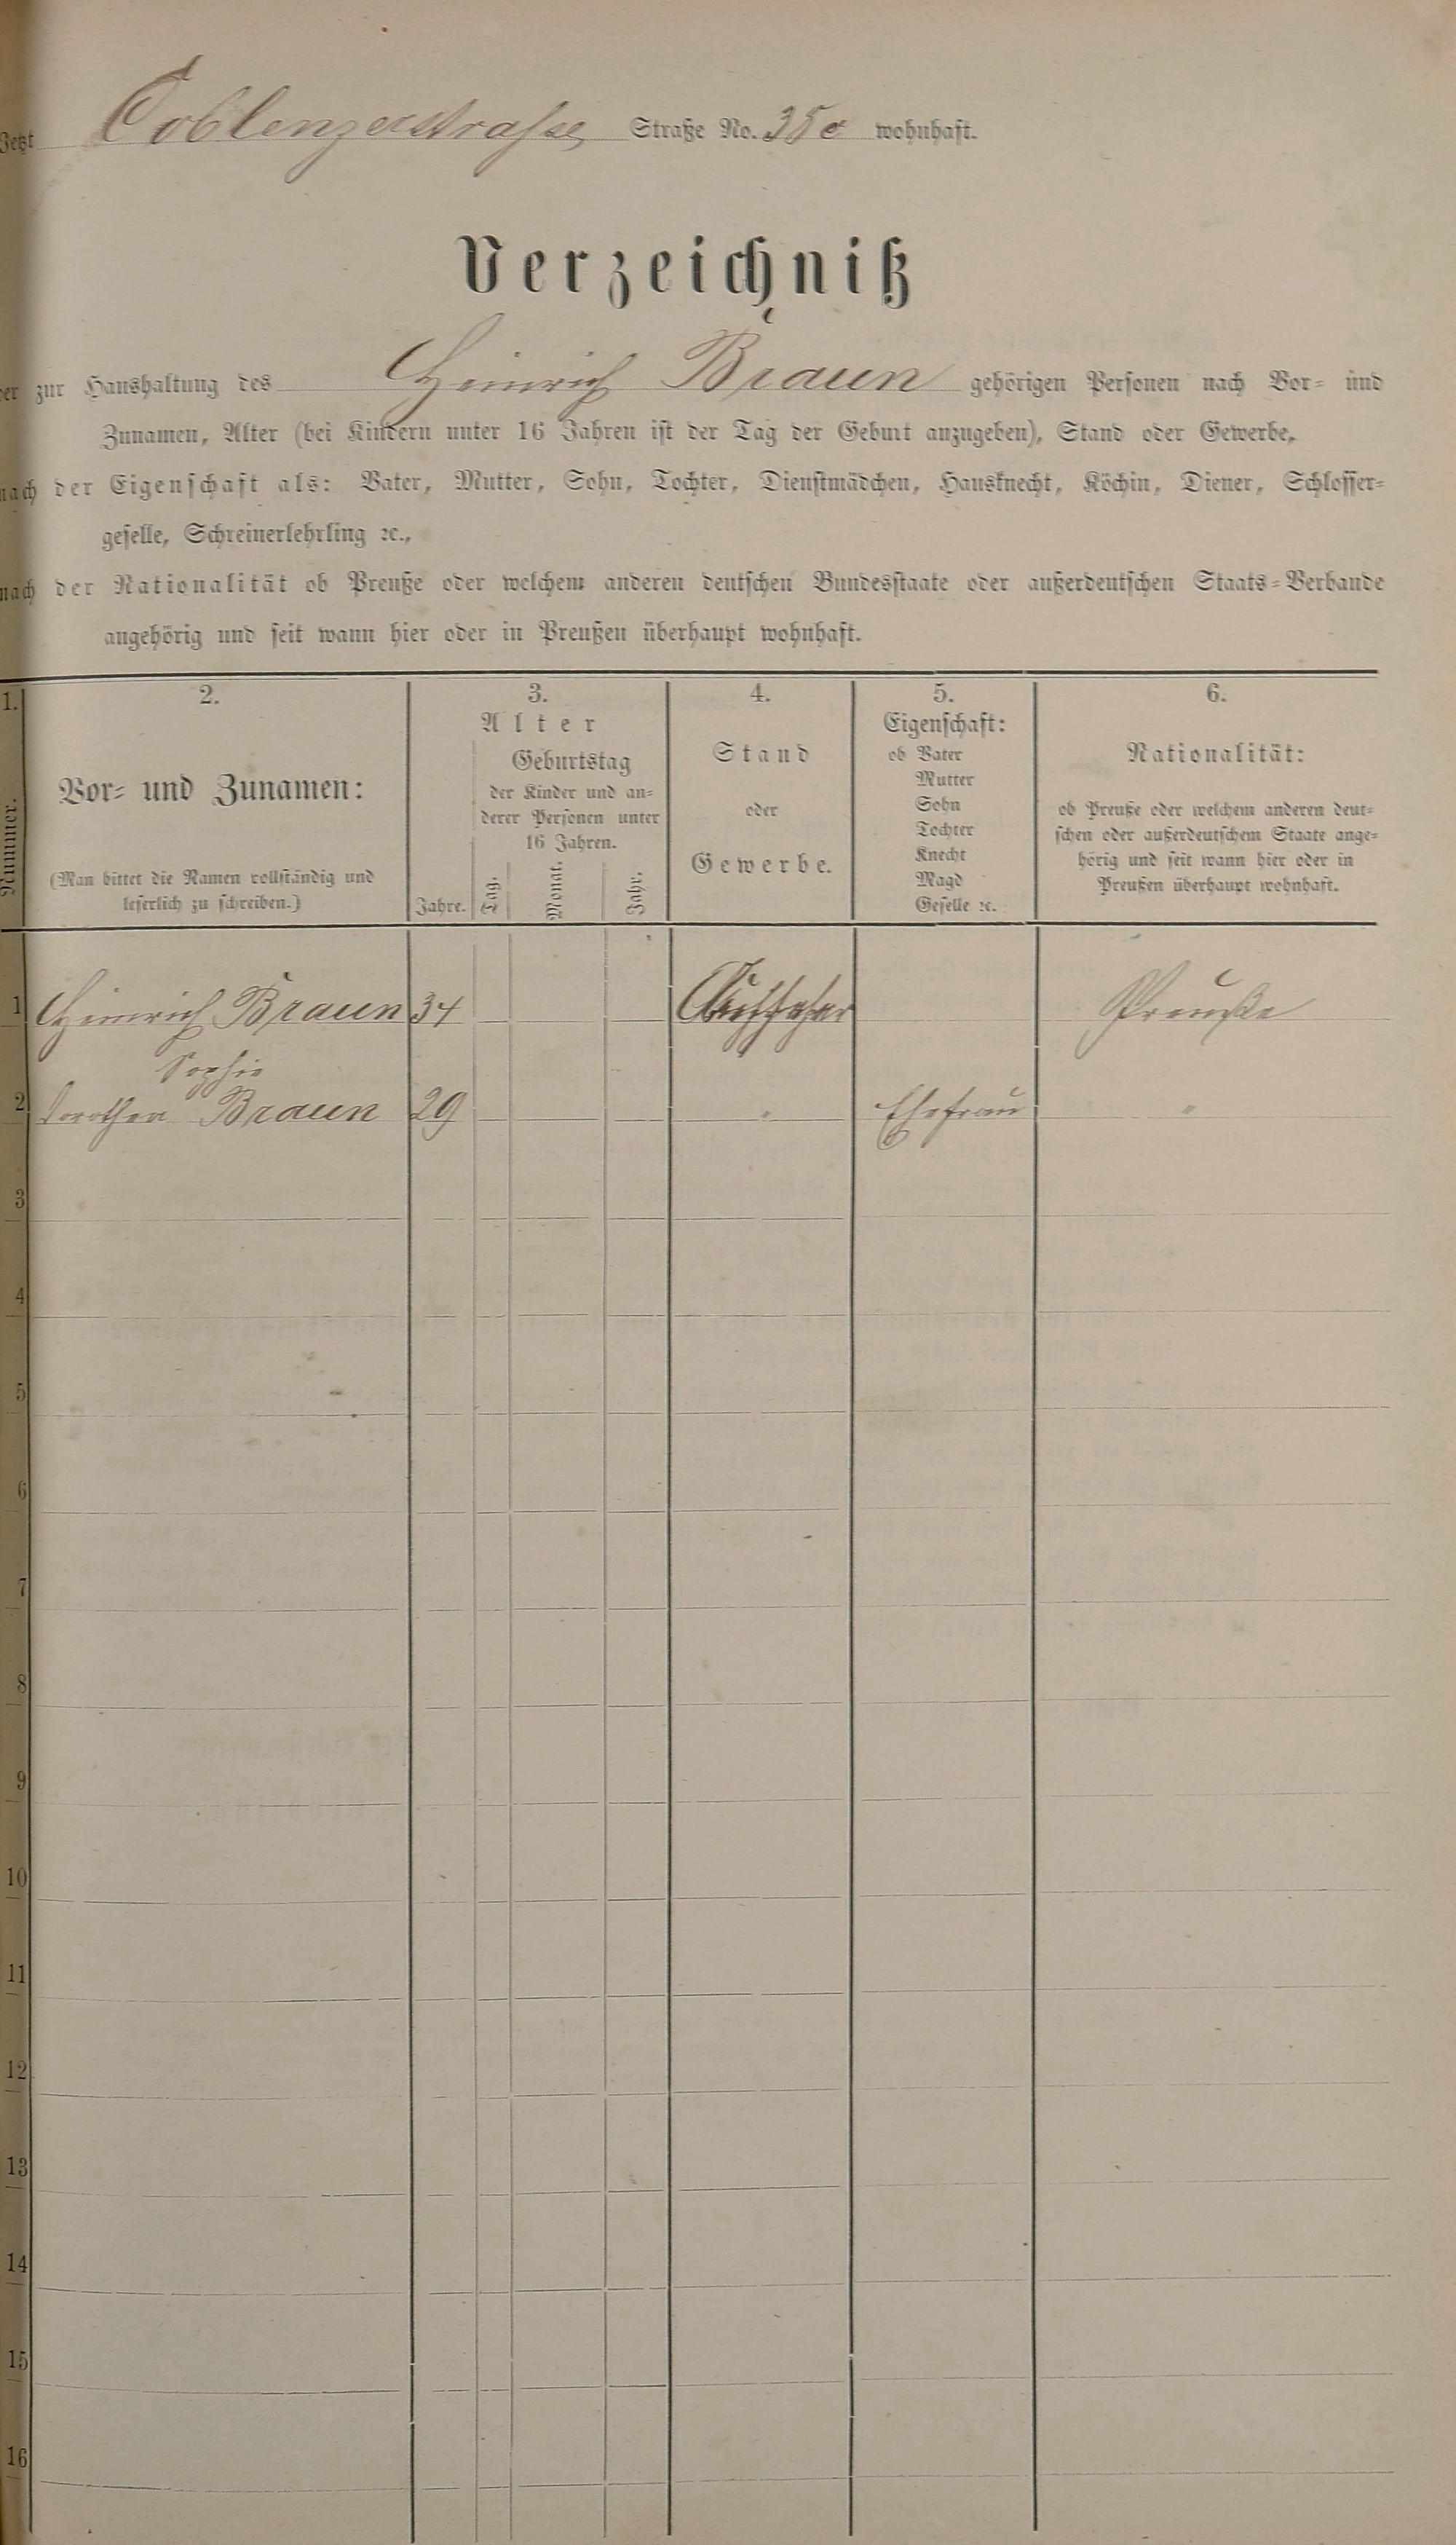 Jetzt Coblenzerstrasse Straße No. 35c wohnhaft.
Verzeichniß
der zur Haushaltung des Heinrich Braun gehörigen Personen nach Vor- und
Zunamen, Alter (bei Kindern unter 16 Jahren ist der Tag der Geburt anzugeben), Stand oder Gewerbe,
nach der Eigenschaft als: Vater, Mutter, Sohn, Tochter, Dienstmädchen, Hausknecht, Köchin, Diener, Schlosser-
geselle, Schreinerlehrling ꝛc.,
nach der Nationalität ob Preuße oder welchem anderen deutschen Bundesstaate oder außerdeutschen Staats-Verbande
angehörig und seit wann hier oder in Preußen überhaupt wohnhaft.
1.
Nummer.
2.
Vor- und Zunamen:
(Man bittet die Namen vollständig und
leserlich zu schreiben.)
3.
Alter
Jahre.
Geburtstag
der Kinder und an-
derer Personen unter
16 Jahren.
Tag.
Monat.
Jahr.
4.
Stand
oder
Gewerbe.
5.
Eigenschaft:
ob Vater
Mutter
Sohn
Tochter
Knecht
Magd
Geselle ꝛc.
6.
Nationalität:
ob Preuße oder welchem anderen deut-
schen oder außerdeutschem Staate ange-
hörig und seit wann hier oder in
Preußen überhaupt wohnhaft.
1 Heinrich Braun 34 Preuße
Sophie
2 Dorothea Braun 29 " Ehefrau "
3
4
5
6
7
8
9
10
11
12
13
14
15
16